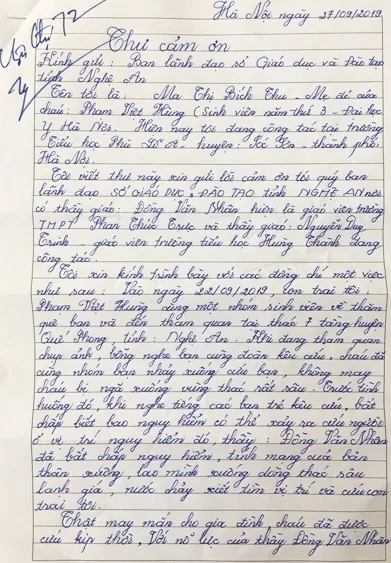 Hà Nội ngày 27/09/2019.
Thư cảm ơn
Kính gửi : Ban lãnh đạo sở Giáo dục và Đào tạo
tỉnh Nghệ An
Tên tôi là : Ma Thị Bích Thu - Mẹ đẻ của
cháu: Phạm Việt Hùng (Sinh viên năm thứ 3 - Đại học
Y Hà Nội. Hiện nay tôi đang công tác tại trường
Tiểu học Phù - huyện: - thành phố:
Hà Nội.
Tôi viết thư này xin gửi lời cảm ơn tới quý ban
lãnh đạo SỞ GIÁO DỤC & ĐÀO TẠO tỉnh NGHỆ AN nơi
có thầy giáo: Đồng Văn Nhân hiện là giáo viên trường
THPT Phan Thúc Trực và thầy giáo: Nguyễn Duy
Trinh - giáo viên trường tiểu học Hưng Thành đang
công tác.
Tôi xin kính trình bày với các đồng chí một việc
như sau : Vào ngày 22/09/2019, con trai tôi :
Phạm Việt Hùng cùng một nhóm sinh viên về thăm
quê bạn và đến tham quan tại thác 7 tầng huyện
Quế Phong tỉnh : Nghệ An. Khi đang tham quan
chụp ảnh, bỗng nghe bạn cùng đoàn kêu cứu, cháu đã
cùng nhóm bạn nhảy xuống cứu bạn, không may
cháu bị ngã xuống vùng thác rất sâu. Trước tình
huống đó, khi nghe tiếng các bạn trẻ kêu cứu, bất
chấp biết bao nguy hiểm có thể xảy ra cứu người
ở vị trí nguy hiểm đó, thầy : Đồng Văn Nhân
đã bất chấp nguy hiểm, tính mạng của bản
thân xuống, lao mình xuống dòng thác sâu
lạnh giá, nước chảy xiết tìm vị trí và cứu con
trai tôi.
Thật may mắn cho gia đình, cháu đã được
cứu kịp thời, Với nỗ lực của thầy Đồng Văn Nhân